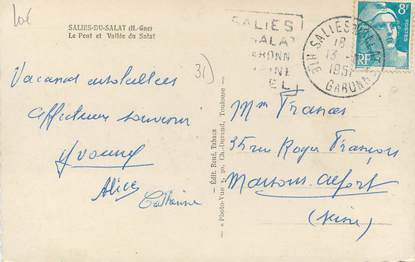 SALIES-DU-SALAT (H.-Gne)
Le Pont et Vallée du Salat
31
Vacances ensoleillées
Affectueux souvenir
Yvonne
Alice
Catherine
Édit. Roul, Tabacs
« Photo-Vue », pp. Ch. Durand, Toulouse
SALIES
SALAT
EL
SALIES
18
13
1951
HTE GARONNE
8F
RF
Mme Frances
35 rue Roger François
Maisons-Alfort
(Seine)